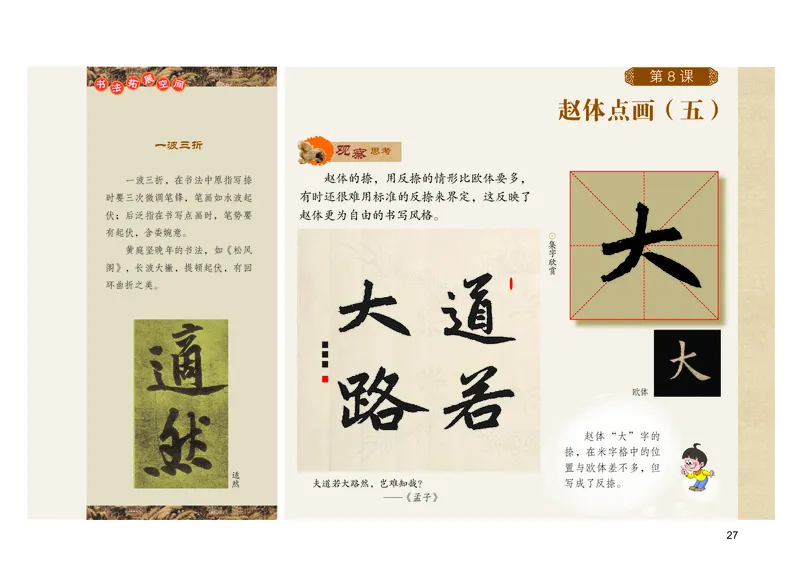 书法拓展空间
一波三折
一波三折，在书法中原指写捺
时要三次微调笔锋，笔画如水波起
伏；后泛指在书写点画时，笔势要
有起伏，含委婉意。
黄庭坚晚年的书法，如《松风
阁》，长波大撇，提顿起伏，有回
环曲折之美。
適
然
适
然
第8课
赵体点画（五）
观察思考
赵体的捺，用反捺的情形比欧体要多，
有时还很难用标准的反捺来界定，这反映了
赵体更为自由的书写风格。
道若
大路
集字欣赏
夫道若大路然，岂难知哉？
——《孟子》
大
大
欧体
赵体“大”字的
捺，在米字格中的位
置与欧体差不多，但
写成了反捺。
27